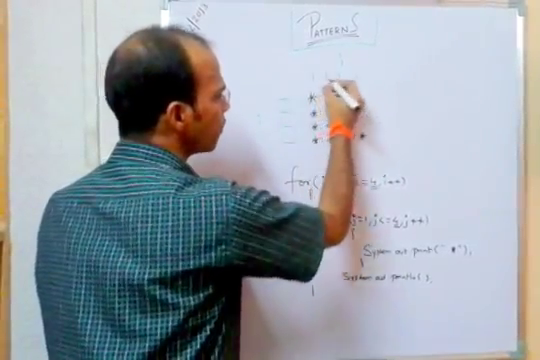 PATTERNS
*
*
*
* *
for( <=4, i++)
{
j=1, j<=4, j++)
{
System out print(" *"),
}
System out println( ),
}